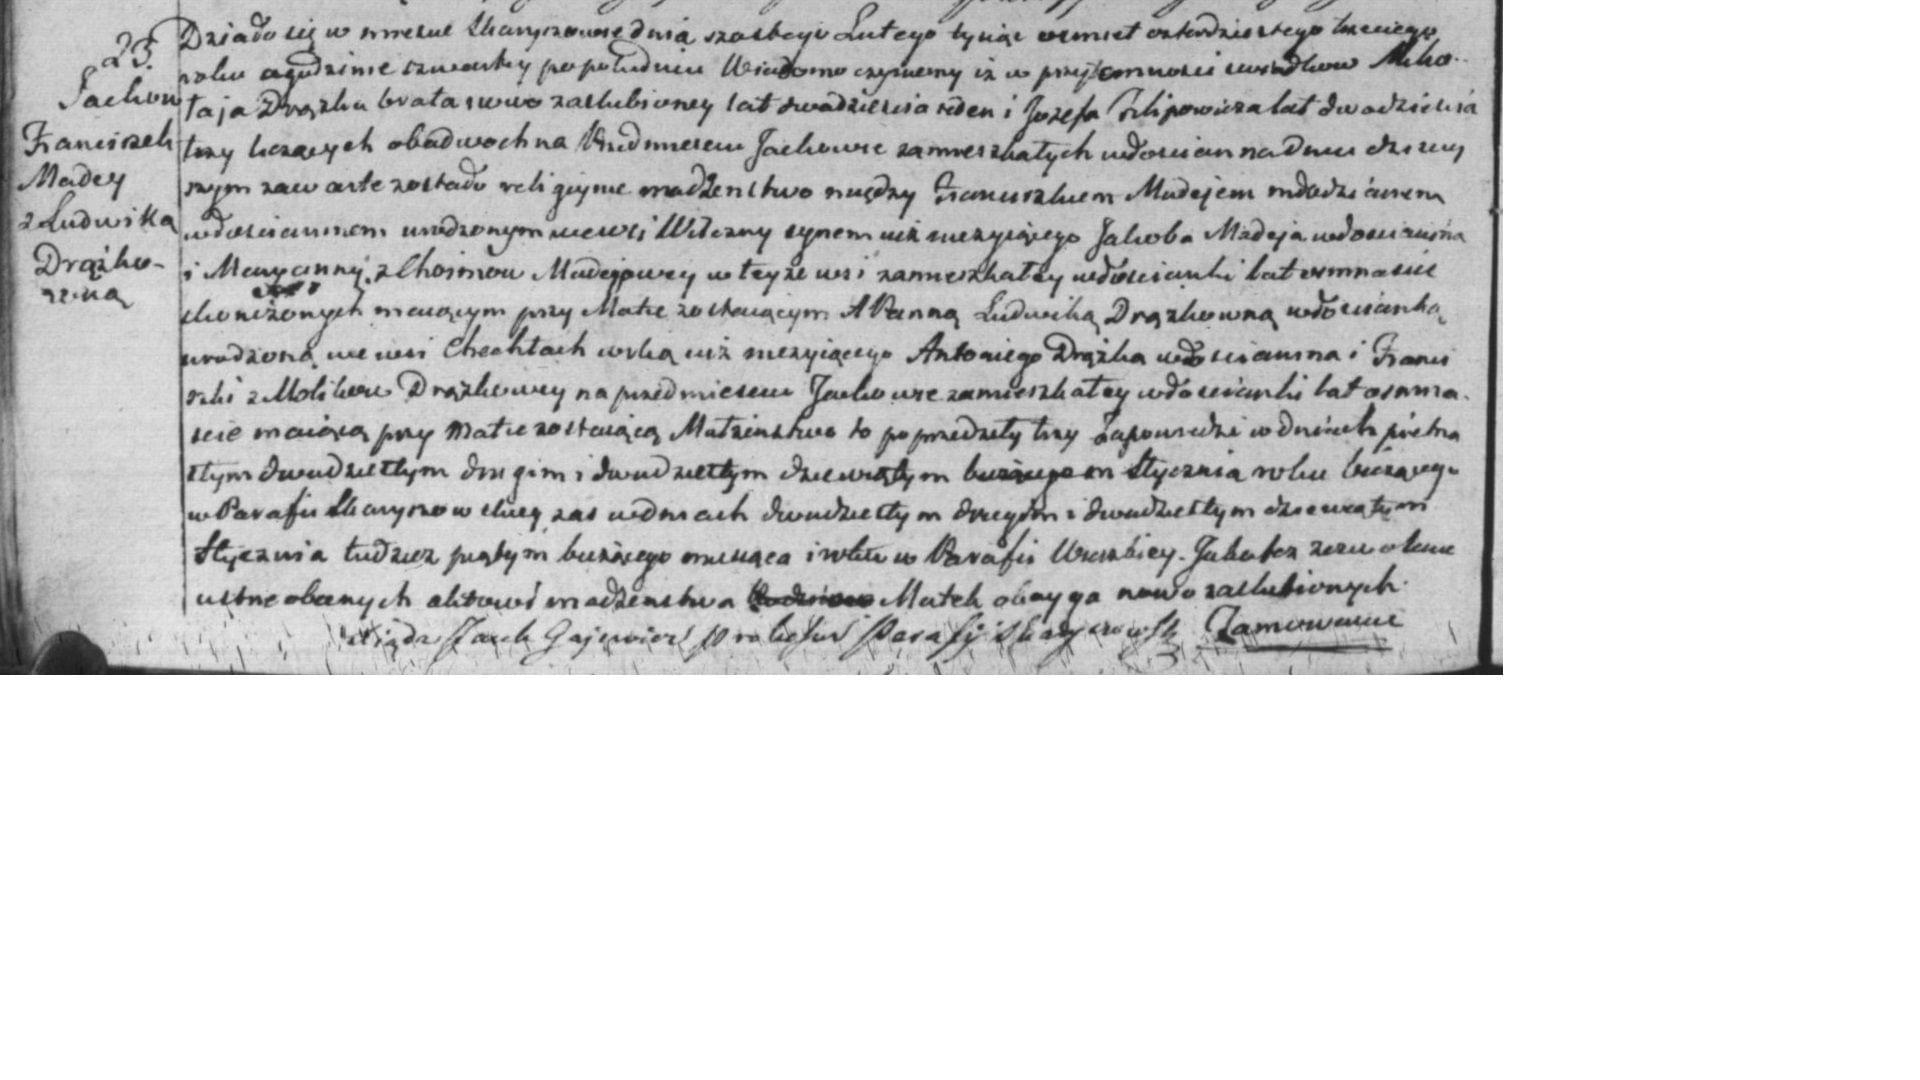 23.
Jachow
Franciszek
Madey
z Ludwiką
Drążko-
wną
Działo się w miescie Skaryszowie dnia szostego Lutego tysiąc osmset czterdziestego trzeciego
roku o godzinie czwartey popołudniu Wiadomo czyniemy iż w przytomnosci swiadkow Miko-
łaja Drązka brata nowo zaslubioney lat dwadziescia ieden i Jozefa Filipowicza lat dwadziescia
trzy liczących obadwoch na Przedmiesciu Jachowie zamieszkałych włoscian na Dniu dzisiey
szym zawarte zostało religiyne małżenstwo między Franciszkiem Madejem młodzianem
włoscianinem urodzonym we wsi Wilczny synem iuż nieżyiącego Jakoba Madeja włoscianina
i Maryanny z Chojnow Madejowey w teyże wsi zamieszkałey włoscianki lat osmnascie
skonczonych maiącym przy Matce zostaiącym A Panną Ludwiką Drązkowną włoscianką
urodzoną we wsi Chechłach corką iuż nieżyiącego Antoniego Drązka włoscianina i Franci
szki z Molikow Drążkowey na przedmiesciu Jachowie zamieszkałey włoscianki lat osmna-
scie maiącą przy Matce zostaiącą Małżenstwo to poprzedziły trzy Zapowiedzi w dniach piętna
stym dwudziestym drugim i dwudziestym dziewiątym Stycznia roku bieżącego
w Parafii Skaryszowskiey zas w dniach dwudziestym drugim i dwudziestym dziewiątym
Stycznia tudziez piątym bieżącego miesiąca i roku w Parafii Jakotez zezwolenie
ustne obecnych aktowi małżenstwa Matek oboyga nowo zaslubionych.
Gajewicz Proboszcz Parafij Skaryszowsk Zamowienie